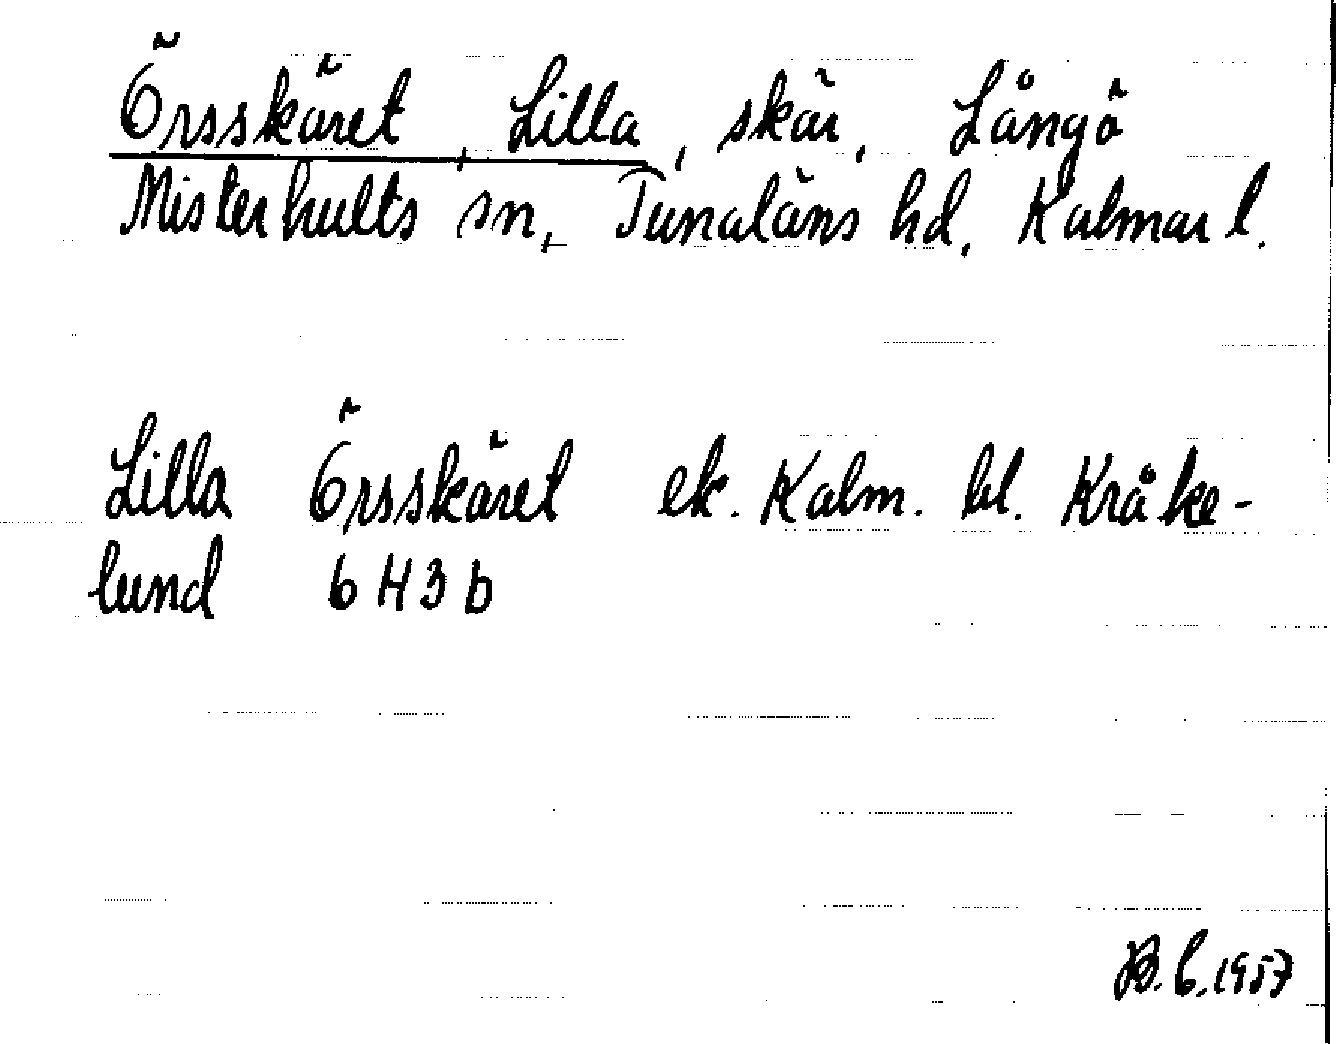 Örsskäret, Lilla, skär, Långö
Misterhults sn, Tunaläns hd, Kalmar l.
Lilla Örsskäret ek. Kalm. bl. Kråke-
lund 6H3b
B.C.1957